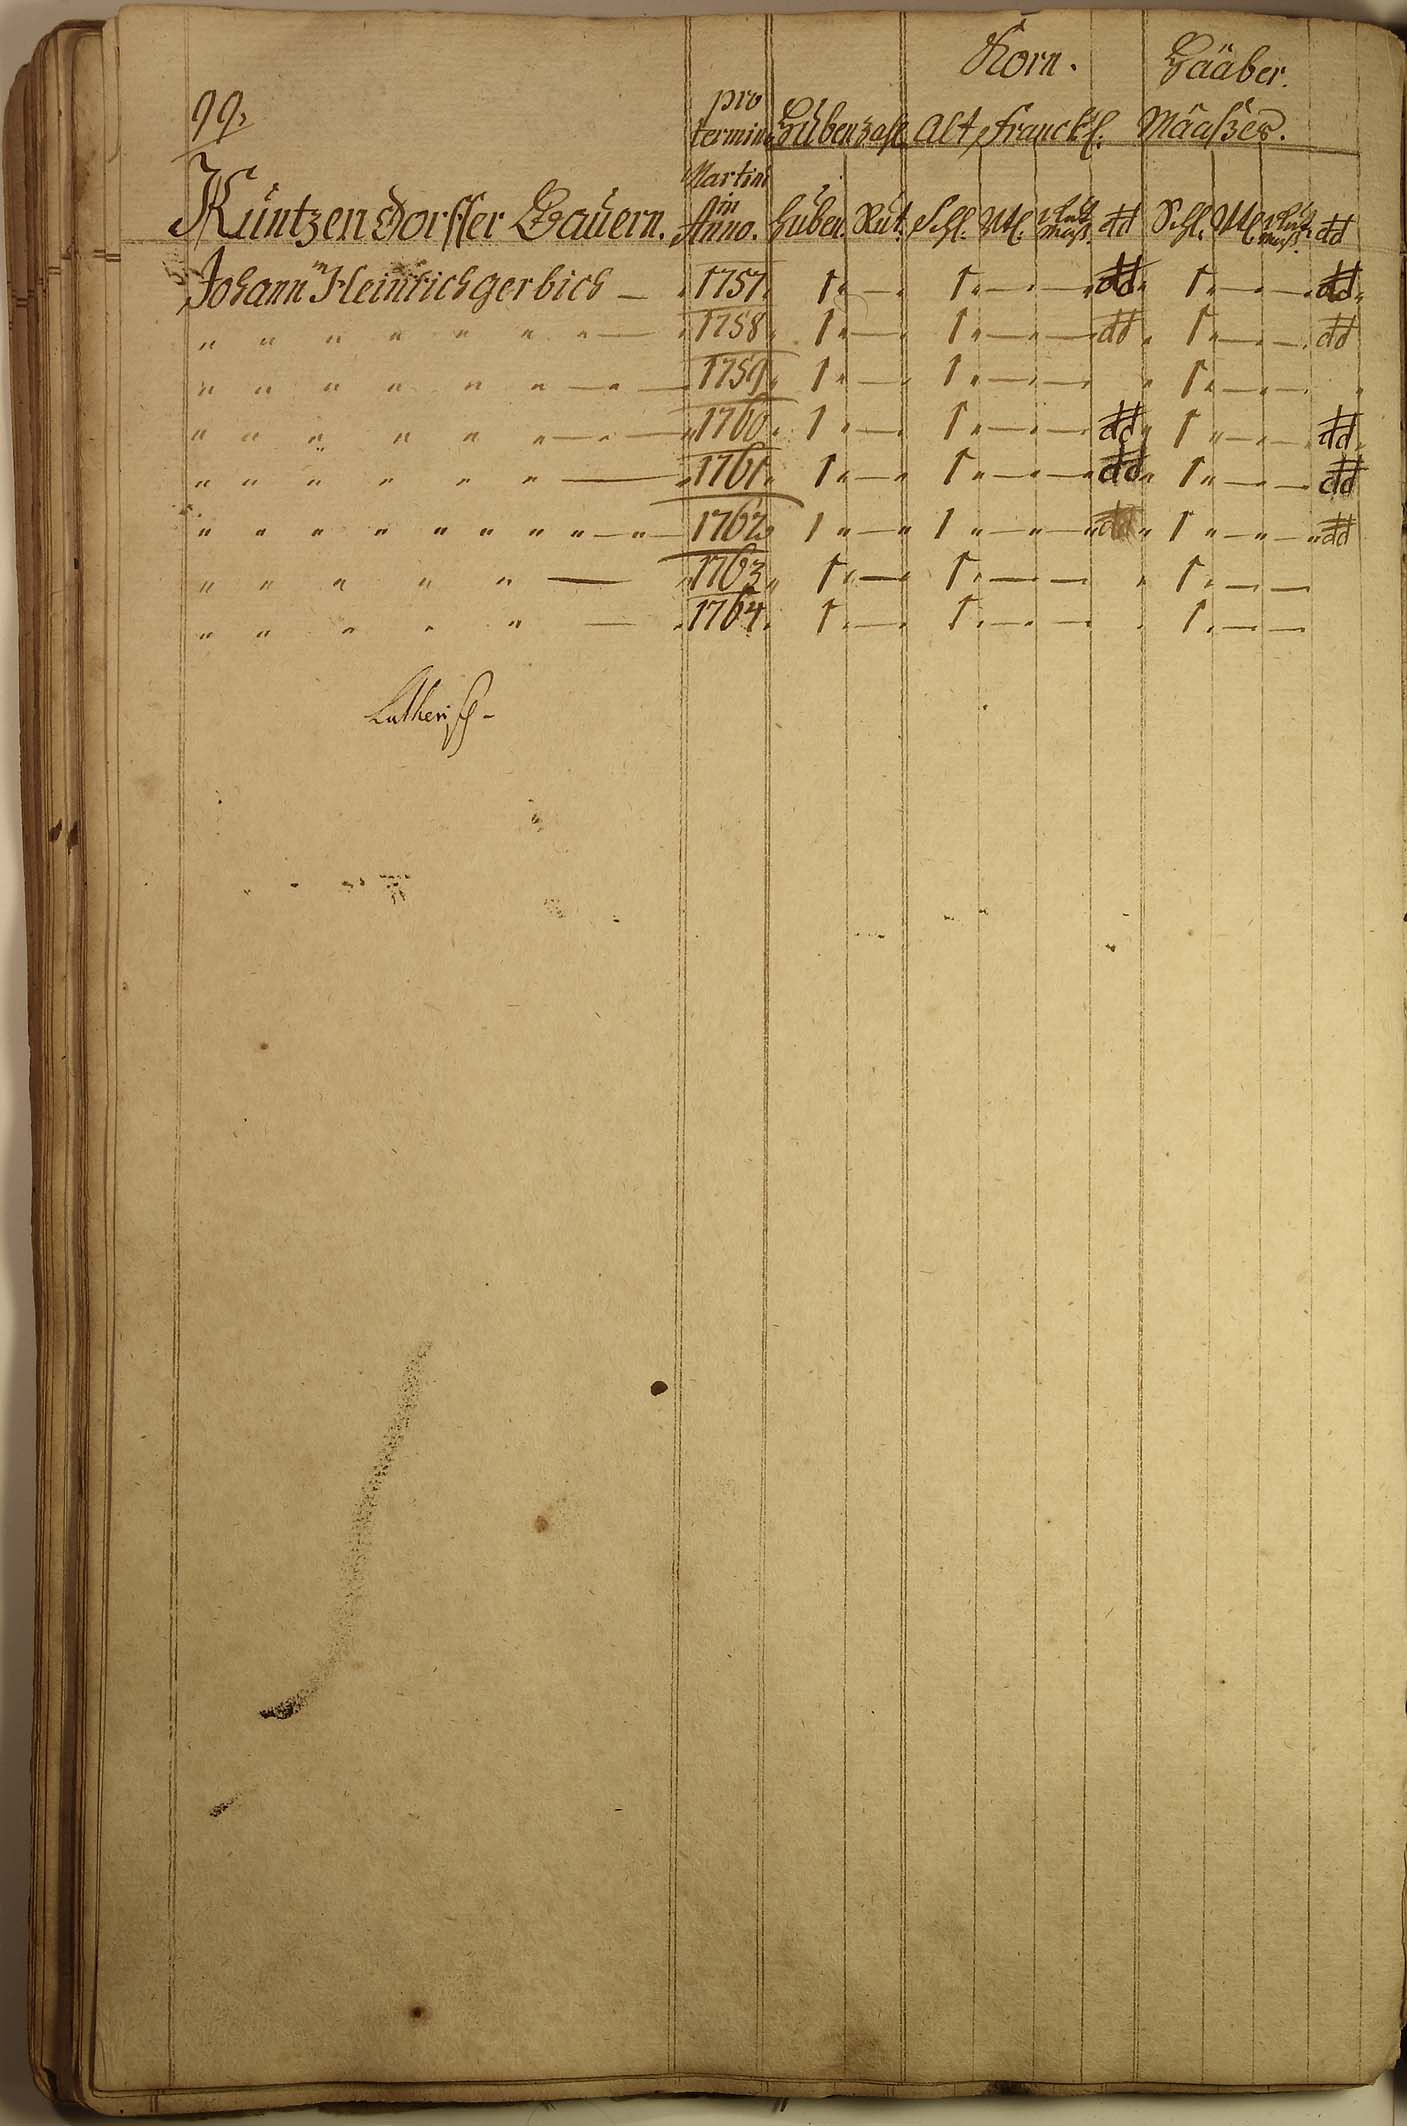 Korn. Haaber.
99,
pro
termino Hubenzahl Alt Franckl. Määßer.
Martini
in
Kuntzendorffer Bauern. Anno. Huben. Rut. Schl. Mtl. dd Schl. Mtl. dd
Johann Heinrich gerbich — 1757. 1 „ — „ 1 „ — „ — dd 1 „ — „ — dd
„ „ „ „ „ „ „ — 1758. 1 „ — „ 1 „ — „ — dd 1 „ — „ — dd
„ „ „ „ „ „ — „ — 1759. 1 „ — „ 1 „ — „ — „ 1 „ — „ — „
„ „ „ „ „ „ — „ — 1760. 1 „ — „ 1 „ — „ — dd 1 „ — „ — dd
„ „ „ „ „ „ — 1761. 1 „ — „ 1 „ — „ — dd 1 „ — „ — dd
„ „ „ „ „ „ „ „ „ — „ — 1762. 1 „ — „ 1 „ — „ — „ dd 1 „ — „ — „ dd
„ „ „ „ „ — 1763. 1 „ — „ 1 „ — — „ 1 „ — —
„ „ „ „ „ — 1764. 1 „ — „ 1 „ — „ — „ 1 „ — —
Lutherisch -